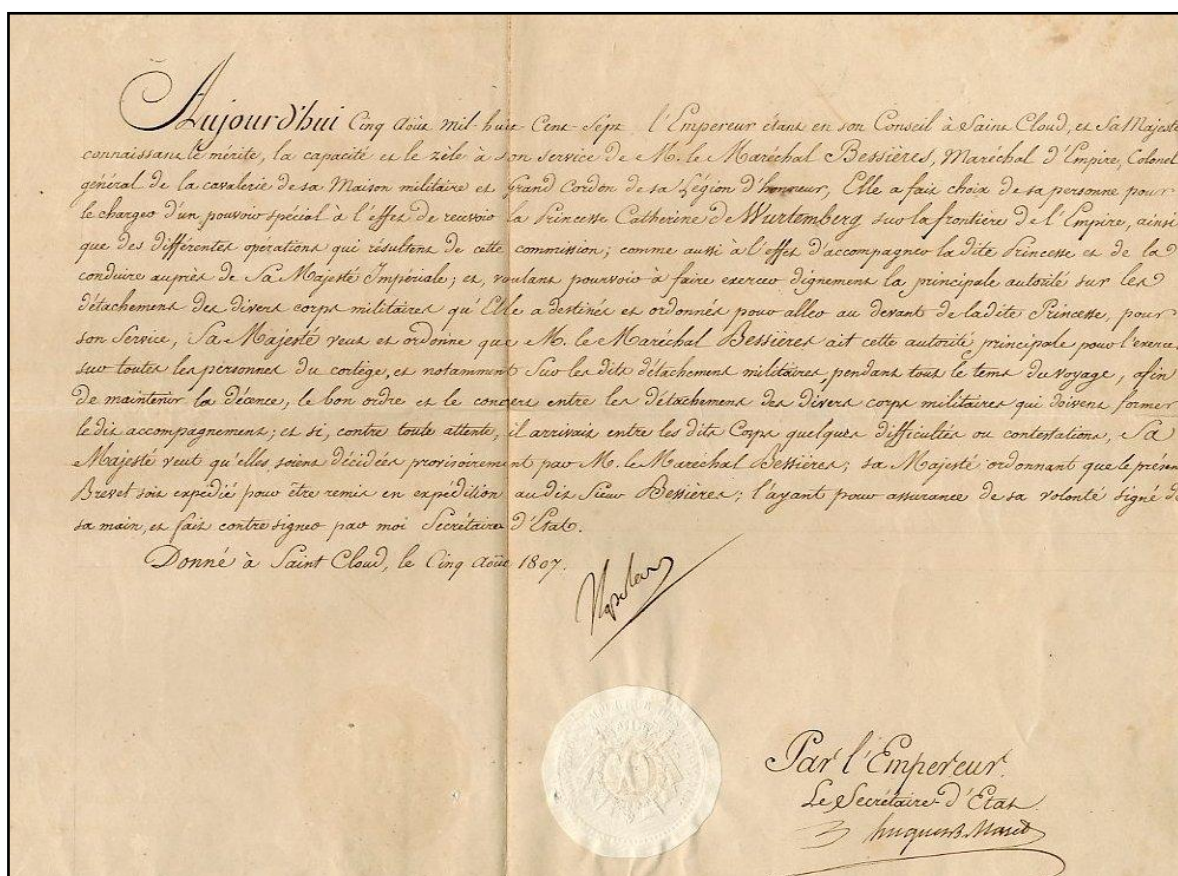 Aujourd'hui Cinq Août mil-huit Cent-Sept l'Empereur étant en son Conseil à Saint Cloud, et Sa Majesté
connaissant le mérite, la capacité et le zèle à son service de M. le Maréchal Bessières, Maréchal d'Empire, Colonel
général de la cavalerie de sa Maison militaire et Grand Cordon de sa Légion d'honneur, Elle a fait choix de sa personne pour
le charger d'un pouvoir spécial à l'effet de recevoir la Princesse Catherine de Wurtemberg sur la frontière de l'Empire, ainsi
que des différentes opérations qui résultent de cette commission; comme aussi à l'effet d'accompagner la dite Princesse et de la
conduire auprès de Sa Majesté Impériale; et, voulant pourvoir à faire exercer dignement la principale autorité sur les
détachement des divers corps militaires qu'Elle a destinés et ordonnés pour aller au devant de la dite Princesse, pour
son Service, Sa Majesté veut et ordonne que M. le Maréchal Bessières ait cette autorité principale pour l'exercer
sur toutes les personnes du cortège, et notamment Sur les dits détachement militaires, pendant tout le tems du voyage, afin
de maintenir la décence, le bon ordre et le concert entre les détachement des divers corps militaires qui doivent former
le dit accompagnement; et si, contre toute attente, il arrivait entre les dits Corps quelques difficultés ou contestations, Sa
Majesté veut qu'elles soient décidées provisoirement par M. le Maréchal Bessières; sa Majesté ordonnant que le présent
Brevet soit expédié pour être remis en expédition au dit Sieur Bessières; l'ayant pour assurance de sa volonté signé de
sa main, et fait contre signer par moi Secrétaire d'Etat.
Donné à Saint Cloud, le Cinq Août 1807.
Par l'Empereur.
Le Secrétaire d'Etat.
hugues B. Maret